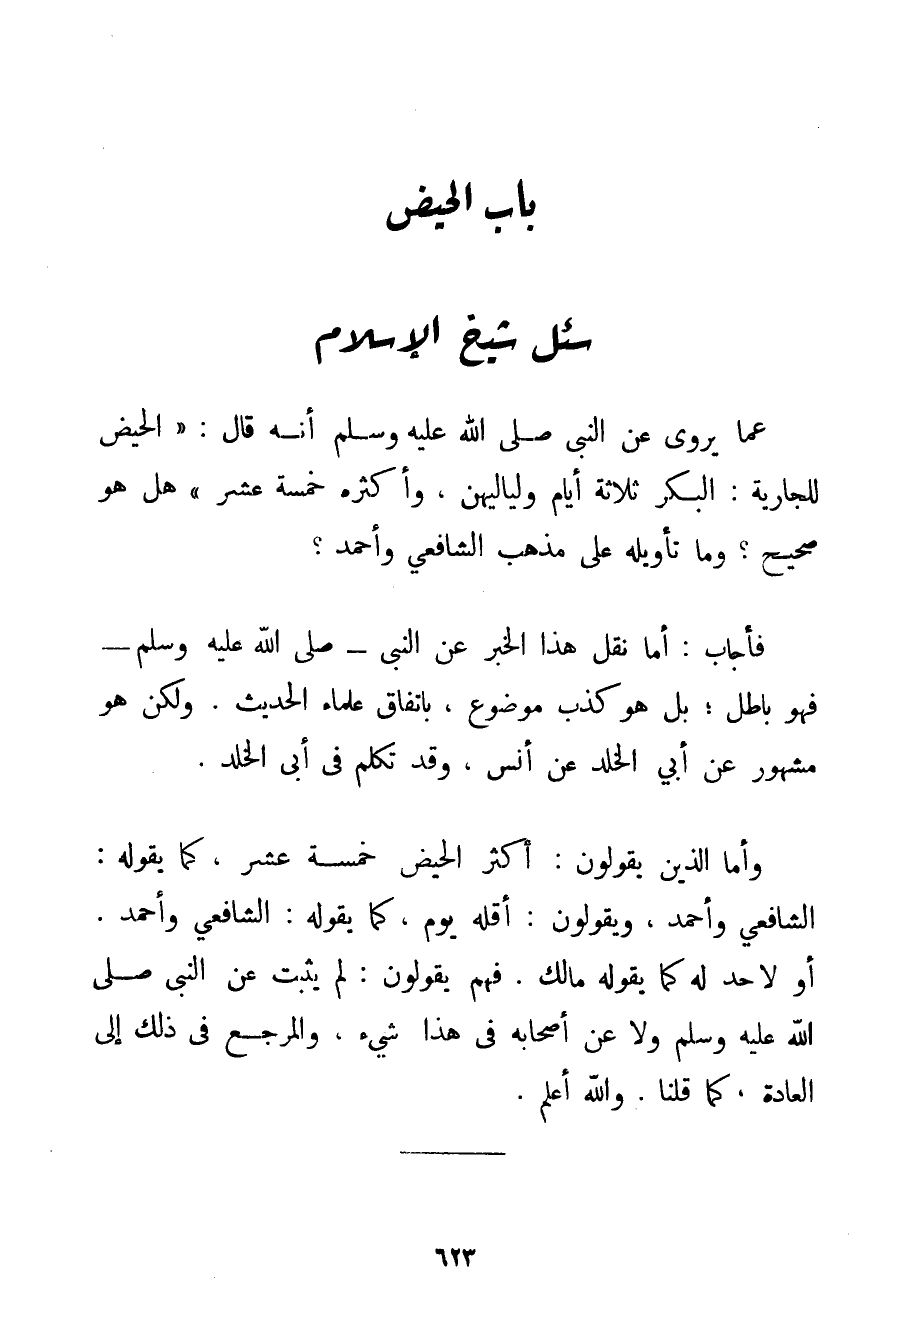 باب الحيض
سئل شيخ الإسلام
عما يروى عن النبى صلى الله عليه وسلم أنه قال : « الحيض
للجارية : البكر ثلاثة أيام ولياليهن ، وأكثره خمسة عشر » هل هو
صحيح ؟ وما تأويله على مذهب الشافعي وأحمد ؟
فأجاب : أما نقل هذا الخبر عن النبى – صلى الله عليه وسلم –
فهو باطل ؛ بل هو كذب موضوع ، باتفاق علماء الحديث . ولكن هو
مشهور عن أبي الخلد عن أنس ، وقد تكلم فى أبى الخلد .
وأما الذين يقولون : أكثر الحيض خمسة عشر ، كما يقوله :
الشافعي وأحمد ، ويقولون : أقله يوم ، كما يقوله : الشافعي وأحمد .
أو لاحد له كما يقوله مالك . فهم يقولون : لم يثبت عن النبى صلى
الله عليه وسلم ولا عن أصحابه فى هذا شيء ، والمرجع فى ذلك إلى
العادة ، كما قلنا . والله أعلم .
٦٢٣